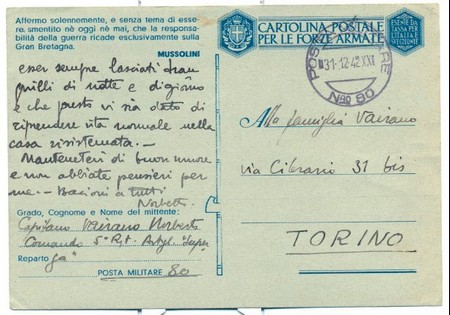 Affermo solennemente, e senza tema di esse-
re smentito nè oggi nè mai, che la responsa-
bilità della guerra ricade esclusivamente sulla
Gran Bretagna.
MUSSOLINI
esser sempre lasciati tran
quilli di notte e di giorno
e che presto vi sia dato di
riprendere vita normale nella
casa risistemata. —
Mantenetevi di buon umore
e non abbiate pensieri per
me. — Bacioni a tutti
Norberto
Grado, Cognome e Nome del mittente:
Capitano Vairano Norberto
Comando 5° Rgt. Artgl. "Super
Reparto ga"
POSTA MILITARE 80
CARTOLINA POSTALE
PER LE FORZE ARMATE
ESENTE DA
TASSA PER
L'ITALIA E
POSTA MILITARE
31-12-42 XXI
No 80
Alla famiglia Vairano
via Cibrario 31 bis
TORINO